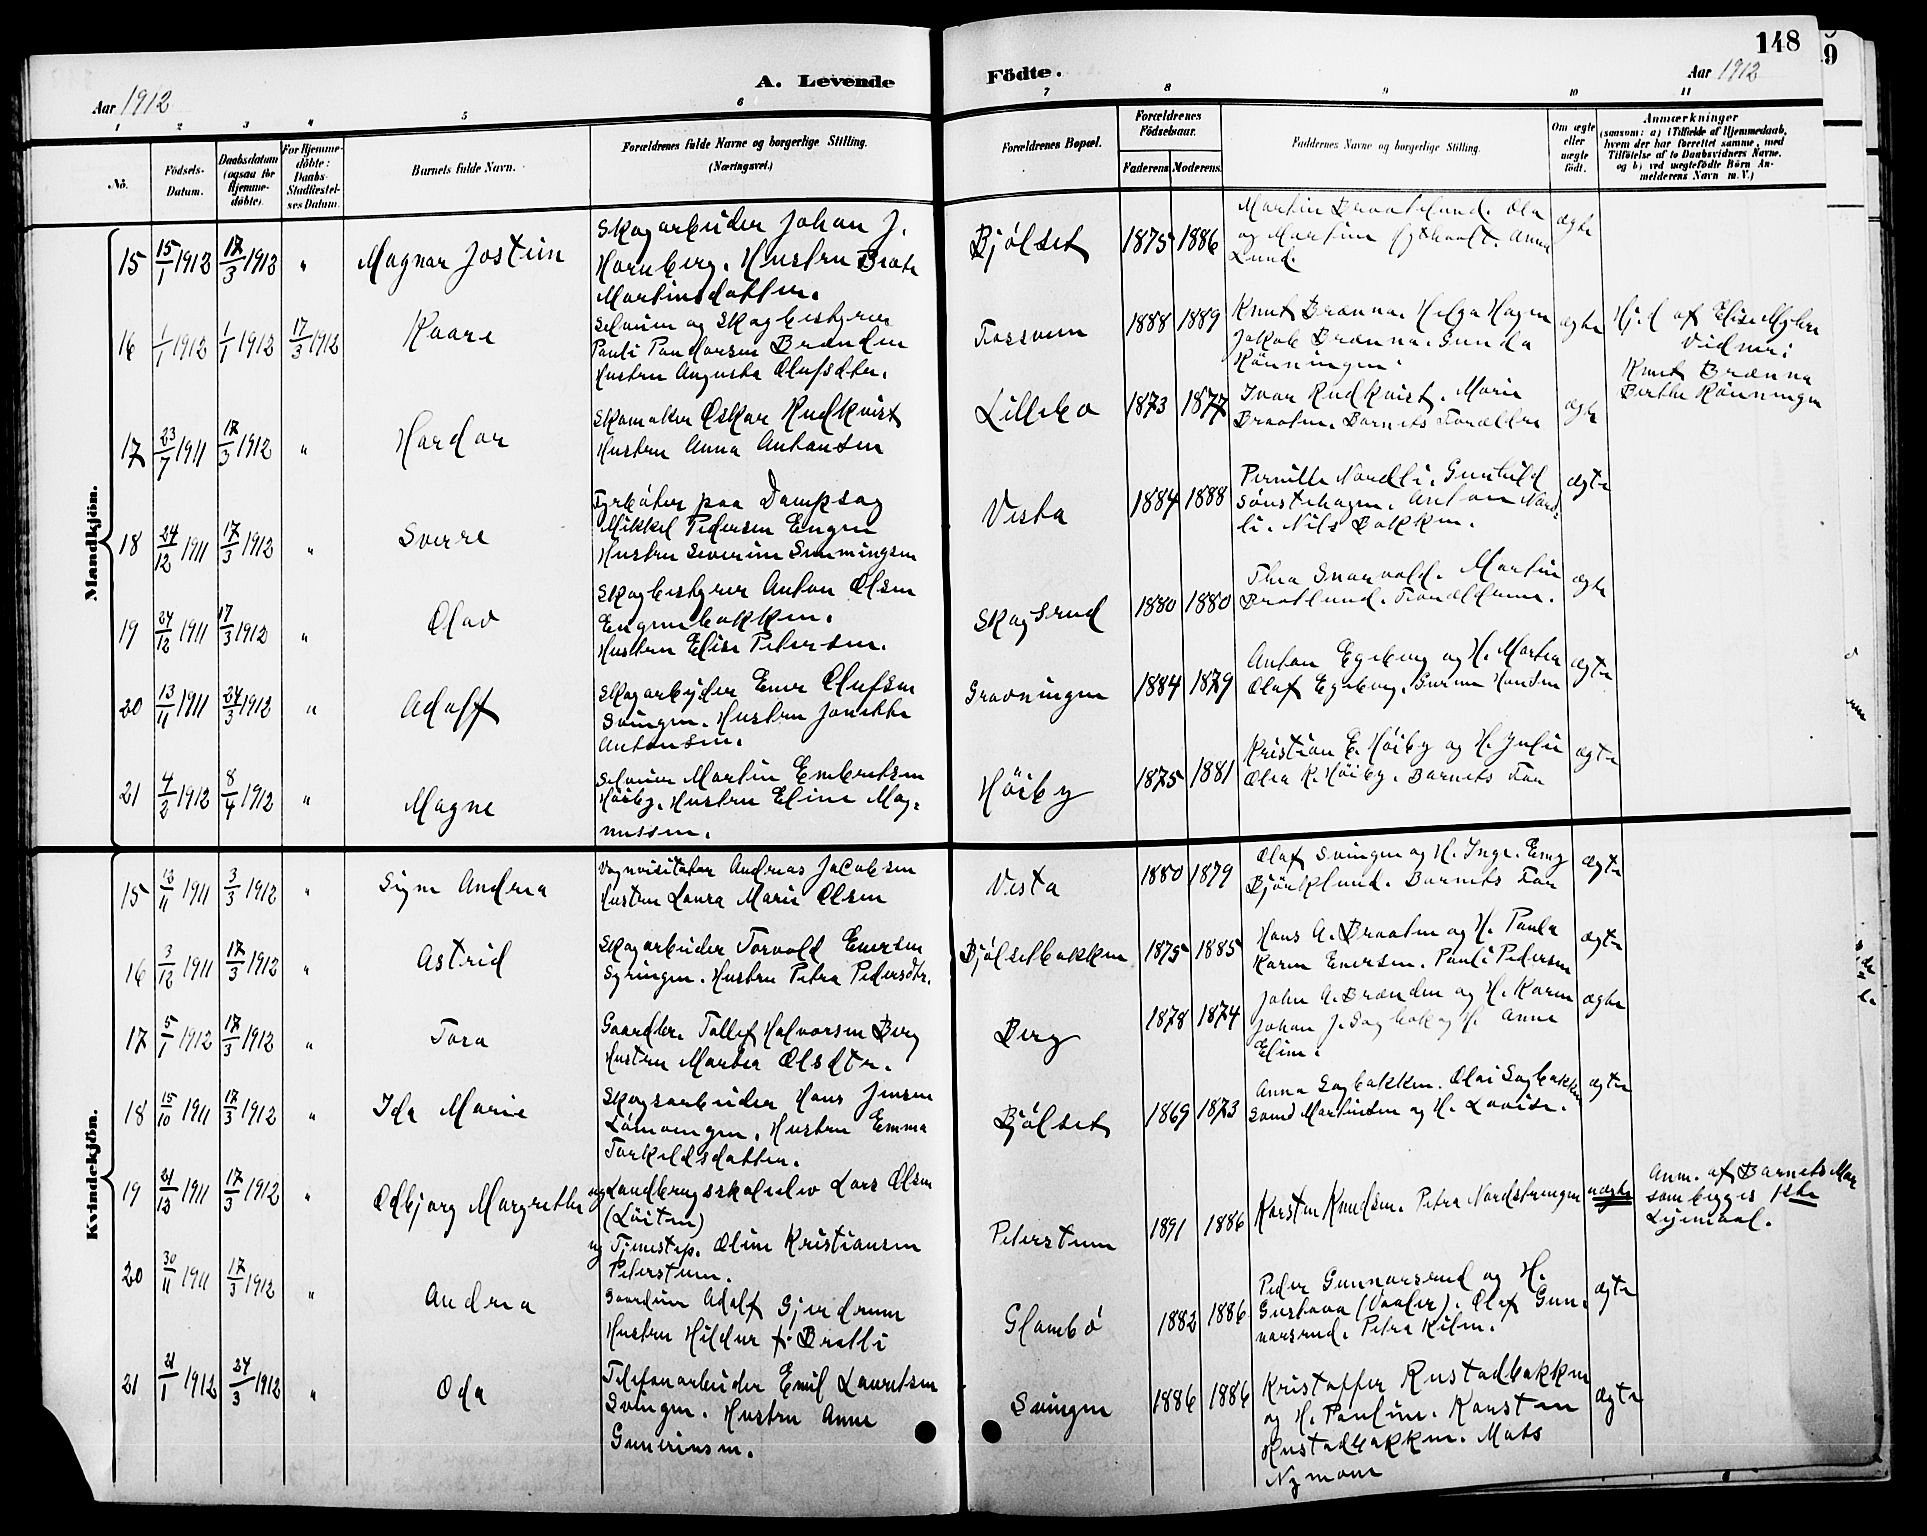 148
9
A. Levende Födte.
Aar 1912
Aar 1912
1 2 3 4 5 6 7 8 9 10 11
No.
Födsels-Datum.
Daabsdatum (ogsaa for Hjemmedöbte).
For Hjemmedöbte: Daabs-Stadfæstelses Datum.
Barnets fulde Navn.
Forældrenes fulde Navne og borgerlige Stilling. (Næringsvei.)
Forældrenes Bopæl.
Forældrenes Födselsaar.
Faderens Moderens
Faddernes Navne og borgerlige Stilling.
Om ægte eller uægte födt.
Anmærkninger
(saasom: a) i Tilfælde af Hjemmedaab, hvem der har forrettet samme, med Tilföielse af to Daabsvidners Navne, og b) ved uægtefödte Börn Anmelderens Navn m. V.)
Mandkjön.
15 15/1 1912 17/3 1912 " Magnar Jostein
Skogarbeider Johan J.
Hornberg. Hustru Beate
Martinsdatter.
Bjølset 1875 1886
Martin Braatelund. Ola
og Martine Anna
Lund.
ægte
16 1/1 1912 1/1 1912 17/3 1912 Kaare
Seleier og Skogbestyrer
Pauli Brænden
Hustru Augusta Olufsdtr.
Fossum 1888 1889
Knut Brænna. Helga Hagen
Jakob Brænna. Gunda
Rönningen.
ægte
Hj.d af Elise Myhre
Vidner:
Knut Brænna
Berthe Rönningen
17 23/7 1911 17/3 1912 " Hardor
Skomaker Oskar Rudkvist
Hustru Anna Antonsen
Lillebo 1873 1877
Ivar Rudkvist. Marie
Braaten. Barnets Forældre
ægte
18 24/12 1911 17/3 1912 " Sverre
Fyrbøter paa Dampsag
Mikkel Pedersen Engen
Hustru Severine Simmingsen
Vesta 1884 1888
Pernille Nordli. Gunhild
Sønstehagen. Anton Nord-
li. Nils Bakken.
ægte
19 24/12 1911 17/3 1912 " Olav
Skogbestyrer Anton Olsen
Engenbakken.
Hustru Elise Petersen.
Skogsrud 1880 1880
Thea Snarvold. Martin
Bratlund. Forældrene.
ægte
20 13/11 1911 24/3 1912 " Adolf
Skogarbeider Ener Olufsen
Svingen. Hustru Jonikke
Antonsen.
Gravningen 1884 1879
Anton Egeberg og H. Martea
Olaf Egeberg. Gurine Hansen
ægte
21 4/2 1912 8/4 1912 " Magne
Seleier Martin Embretsen
Höiby. Hustru Eline Mag-
nussen.
Höiby 1875 1881
Kristian E. Höiby og H. Julie
Olea K. Höiby. Barnets Far
ægte
Kvindekjön.
15 13/11 1911 3/3 1912 " Signe Andrea
Vognvisitatør Andreas Jacobsen
Hustru Laura Marie Olsen
Vesta 1880 1879
Olaf Svingen og H. Inge. Emy
Björklund. Barnets Far
ægte
16 3/12 1911 17/3 1912 " Astrid
Skogarbeider Torvald Enersen
Syringen. Hustru Petra Pedersdtr.
Bjølsetbakken 1875 1885
Hans A. Braaten og H. Paula
Karen Enersen. Pauli Pedersen
ægte
17 5/1 1912 17/3 1912 " Tora
Gaardbr. Tollef Halvorsen Berg
Hustru Martea Olsdtr.
Berg 1878 1874
John A. Brænden og H. Karen
Johan J. Sagbak og H. Anne
Eline.
ægte
18 15/10 1911 17/3 1912 " Ida Marie
Skogsarbeider Hans Jensen
Lömoengen. Hustru Emma
Torkildsdatter.
Bjølset 1869 1873
Anna Sagbakken. Olai Sagbakken
Svend Martinsen og H. Lovise.
ægte
19 21/12 1911 17/3 1912 " Odbjørg Margrethe
ug Landbrugsskoleelev Lars Olsen
(Löiten)
ug Tjenestep. Oline Kristiansen
Peterstuen.
Peterstuen 1891 1886
Karsten Knudsen. Petra Nordstrengen
uægte
Anm. af Barnets Mor
som begges 1ste
Leiermaal.
20 30/11 1911 17/3 1912 " Andrea
Gaardeier Adolf Gjerdrum
Hustru Hildur f. Bratli
Glambö 1882 1886
Peder Gunnarsrud og H.
Gustava (Vaaler). Olaf Gun-
narsrud. Petra Kilen.
ægte
21 21/1 1912 24/3 1912 " Oda
Telefonarbeider Emil Lauritsen
Svingen. Hustru Anne
Gunerinsen.
Svingen 1886 1886
Kristoffer Rustadbakken
og H. Pauline. Karsten
Rustadbakken. Mats
Nymoen
ægte